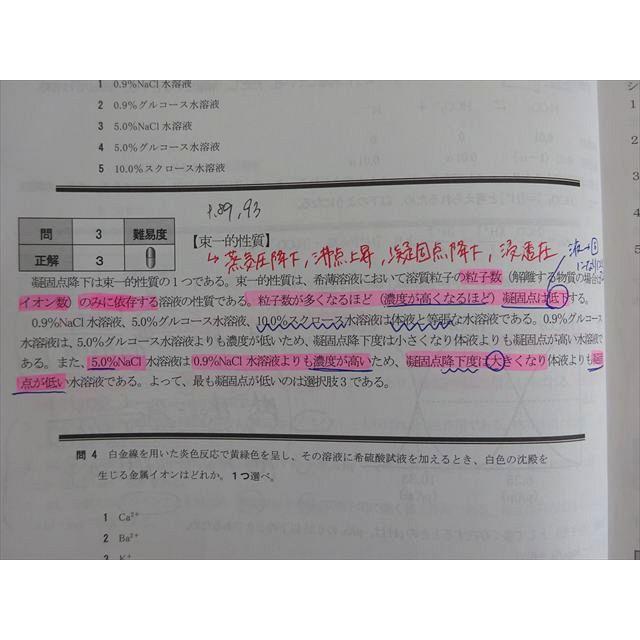 1 0.9%NaCl 水溶液
2 0.9%グルコース水溶液
3 5.0%NaCl 水溶液
4 5.0%グルコース水溶液
5 10.0%スクロース水溶液
P.89,93
問 3 難易度
正解 3
【束一的性質】
↳ 蒸気圧降下,沸点上昇,凝固点降下,浸透圧,
凝固点降下は束一的性質の1つである。束一的性質は、希薄溶液において溶質粒子の粒子数(解離する物質の場合は
イオン数)のみに依存する溶液の性質である。粒子数が多くなるほど(濃度が高くなるほど)凝固点は低下する。
0.9%NaCl 水溶液、5.0%グルコース水溶液、10.0%スクロース水溶液は体液と等張な水溶液である。0.9%グルコース
水溶液は、5.0%グルコース水溶液よりも濃度が低いため、凝固点降下度は小さくなり体液よりも凝固点が高い水溶液で
ある。また、5.0%NaCl 水溶液は 0.9%NaCl 水溶液よりも濃度が高いため、凝固点降下度は大きくなり体液よりも凝固
点が低い水溶液である。よって、最も凝固点が低いのは選択肢3である。
問 4 白金線を用いた炎色反応で黄緑色を呈し、その溶液に希硫酸試液を加えるとき、白色の沈殿を
生じる金属イオンはどれか。1つ選べ。
1 Ca²⁺
2 Ba²⁺
3 K⁺